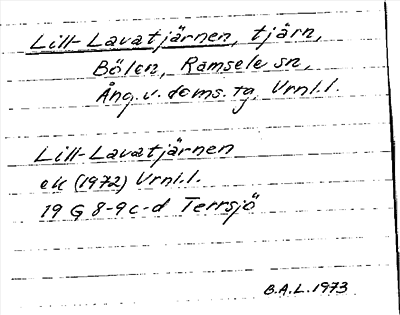 Lill-Lavatjärnen, tjärn,
Bölen, Ramsele sn,
Ång. v. doms. tg, Vrnl.l.
Lill-Lavatjärnen
ek (1972) Vrnl.l.
19 G 8-9 c-d Terrsjö
B.A.L. 1973